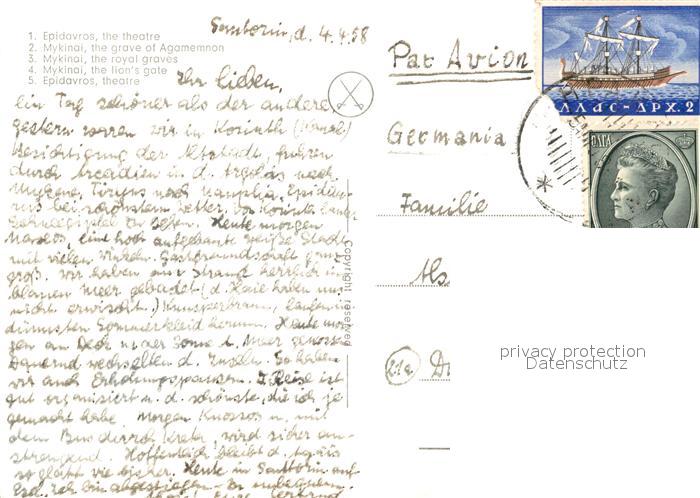 Santorin, d. 4.4.58
1. Epidavros, the theatre
2. Mykinai, the grave of Agamemnon
3. Mykinai, the royal graves
4. Mykinai, the lion's gate
5. Epidavros, theatre
Ihr Lieben,
ein Tag schöner als der andere
gestern waren wir in Korinth (Kanal)
Besichtigung der Altstadt, fuhren
durch Arcadien in d. Argolis nach
Mykene, Tiryns nach Nauplia, Epidau-
rus bei schönstem Wetter. Vor Korinth
zu sehen. Heute morgen
eine hoch aufgebaute weiße Stadt
mit vielen Winkeln. Gastfreundschaft ganz
groß. Wir haben am Strand herrlich im
blauen Meer gebadet (d. Haie haben uns
nicht erwischt.) laufen im
dünnsten Sommerkleid herum. Heute mor-
gen an Deck in der Sonne d. Meer genossen
Dauernd wechselten d. Inseln. So haben
wir auch Erholungspausen. D. Reise ist
gut organisiert u. d. schönste, die ich je
gemacht habe. Morgen Knossos u. mit
dem Bus durch Kreta, wird sicher an-
strengend. Hoffentlich bleibt d.
so glatt wie bisher. Heute in Santorin auf
Esel, ich bin abgestiegen
Copyright reserved
Par Avion
Germania
Familie
ΕΛΛΑΣ-ΔΡΧ. 2
ΟΛΓΑ
privacy protection
Datenschutz